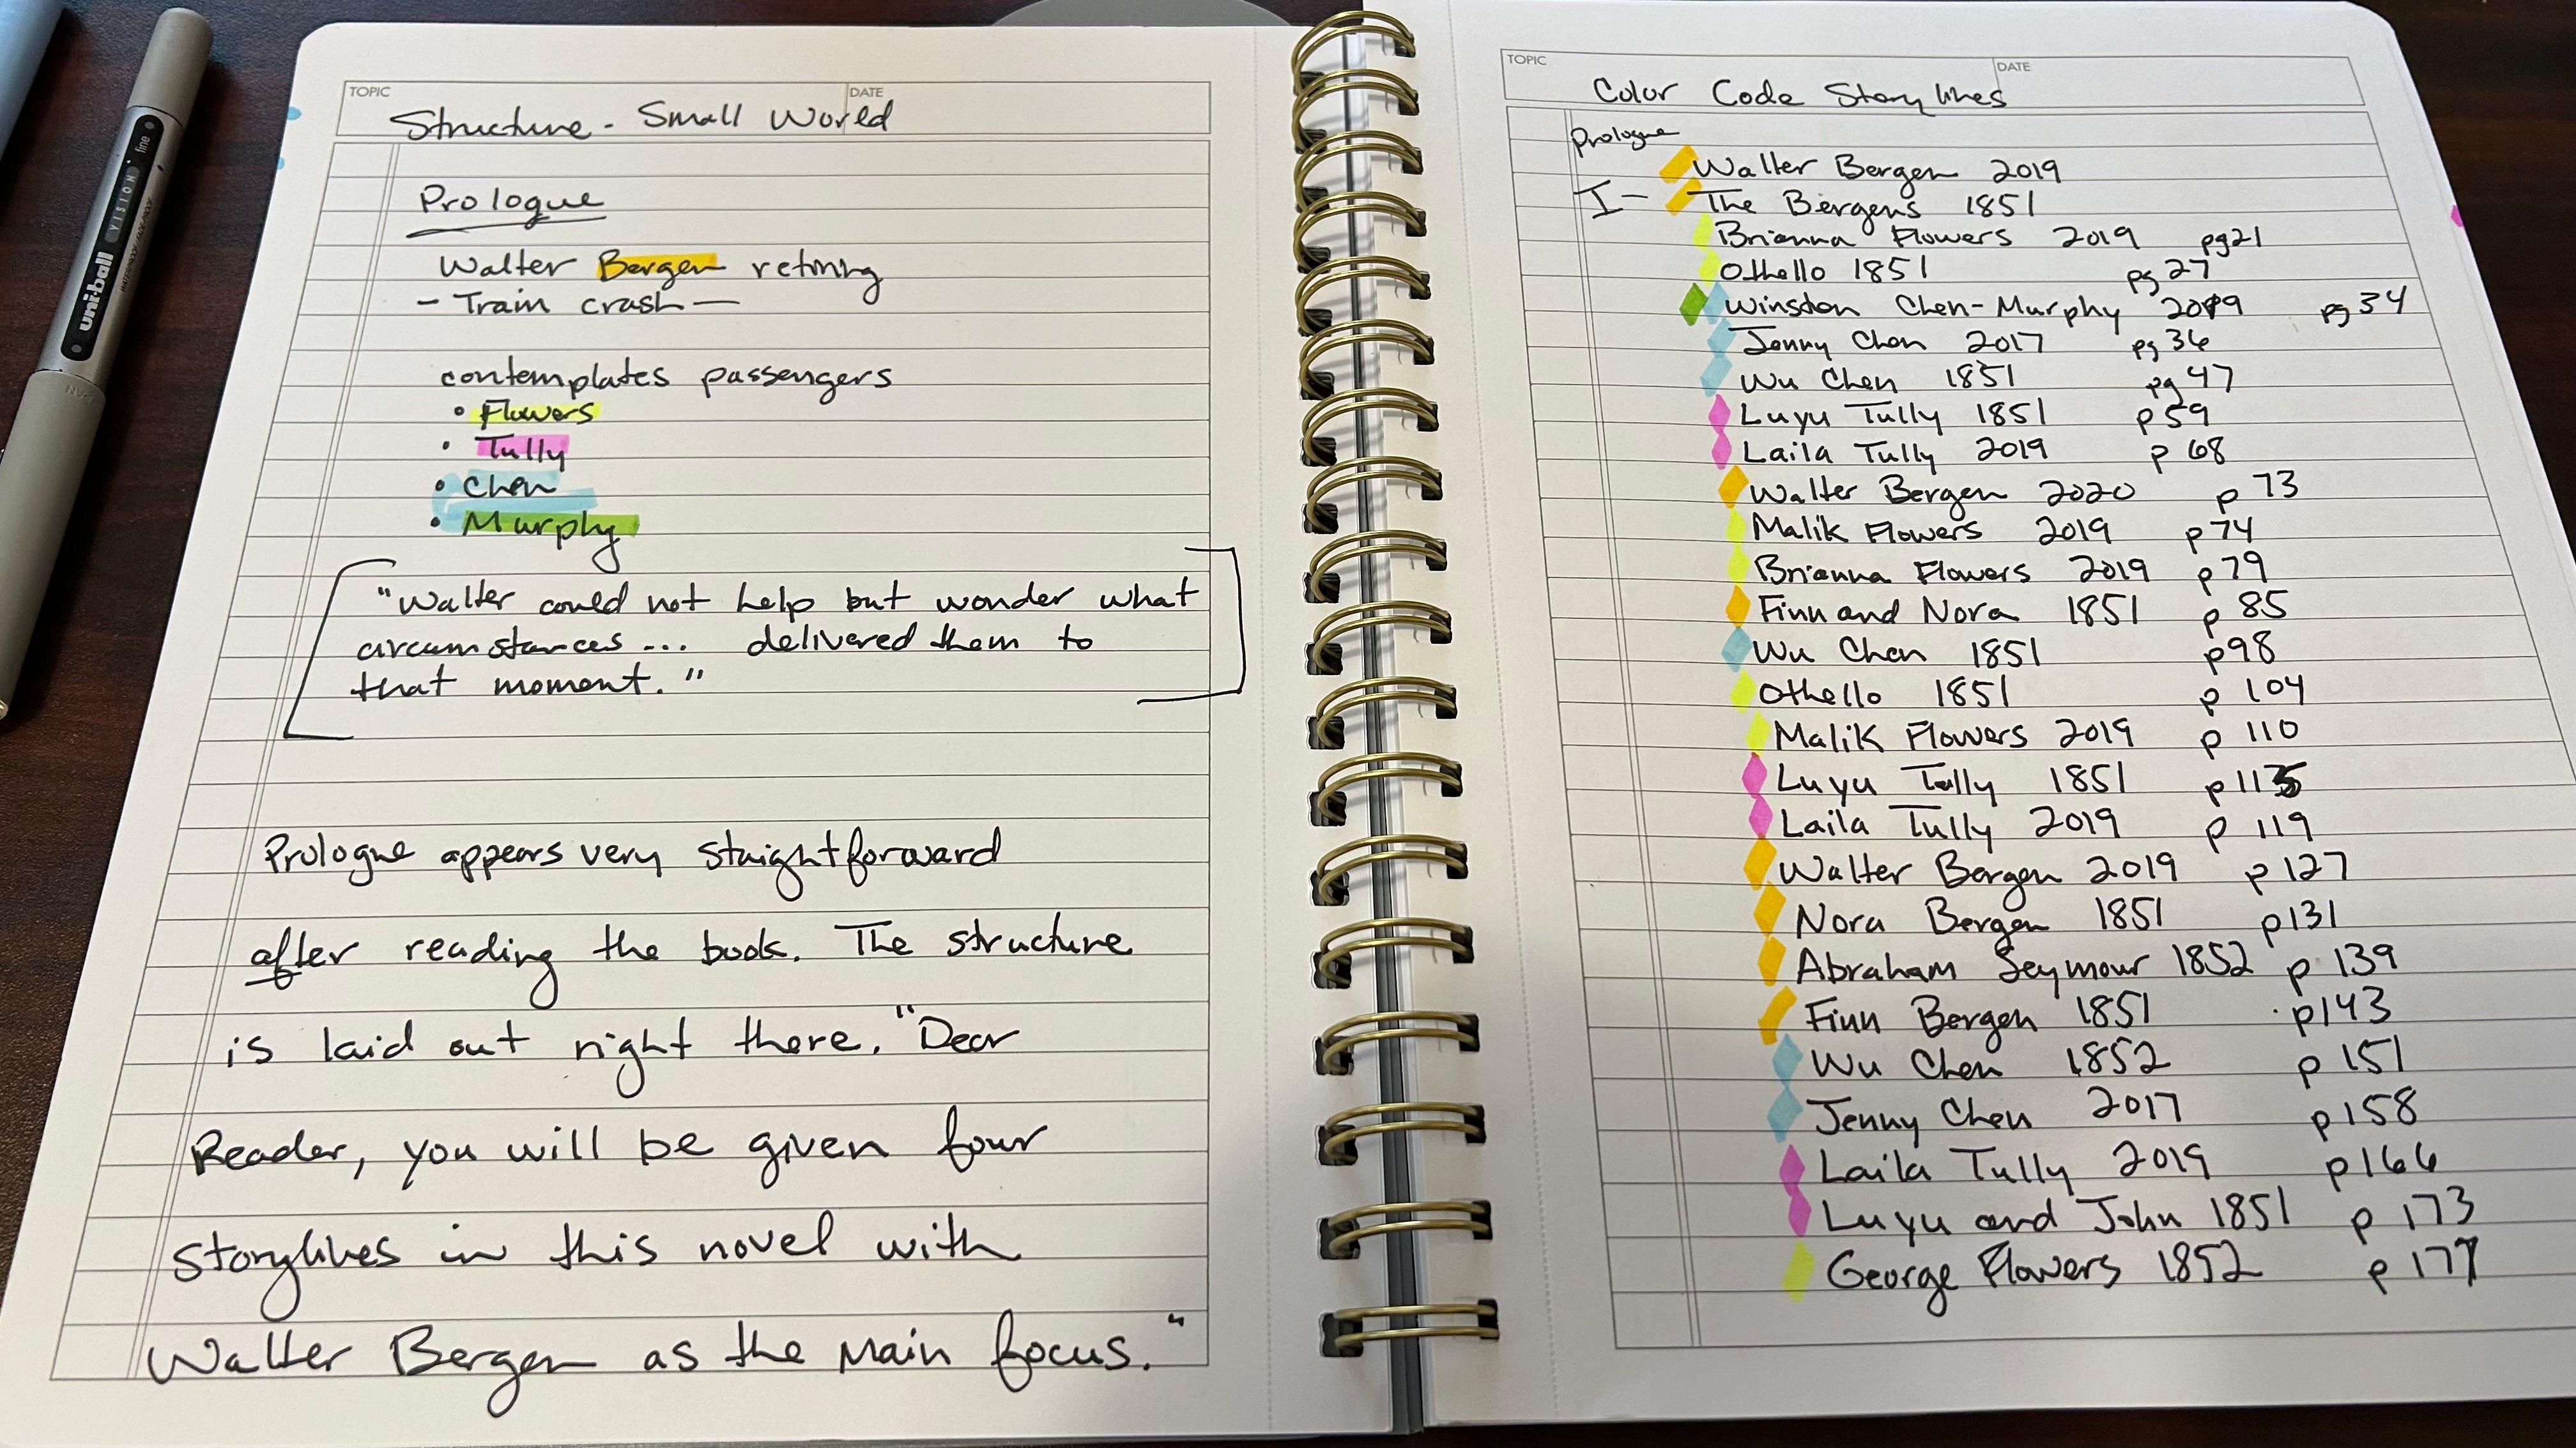 uni-ball VISION fine
WATERPROOF/FADE-PROOF
TOPIC DATE
Structure - Small World
Prologue
Walter Bergen retiring
- Train crash -
contemplates passengers
• Flowers
• Tully
• Chen
• Murphy
"Walter could not help but wonder what
circumstances ... delivered them to
that moment."
Prologue appears very staightforward
after reading the book. The structure
is laid out right there. "Dear
Reader, you will be given four
storylines in this novel with
Walter Bergen as the main focus."
TOPIC DATE
Color Code Storylines
Prologue
Walter Bergen 2019
I - The Bergens 1851
Brianna Flowers 2019 pg21
Othello 1851 pg 27
Winston Chen-Murphy 2019 pg 34
Jenny Chen 2017 pg 36
Wu Chen 1851 pg 47
Luyu Tully 1851 p59
Laila Tully 2019 p 68
Walter Bergen 2020 p 73
Malik Flowers 2019 p74
Brianna Flowers 2019 p79
Finn and Nora 1851 p 85
Wu Chen 1851 p98
Othello 1851 p 104
Malik Flowers 2019 p 110
Luyu Tully 1851 p115
Laila Tully 2019 p 119
Walter Bergen 2019 p 127
Nora Bergen 1851 p131
Abraham Seymour 1852 p 139
Finn Bergen 1851 p143
Wu Chen 1852 p 151
Jenny Chen 2017 p158
Laila Tully 2019 p166
Luyu and John 1851 p 173
George Flowers 1852 p 177